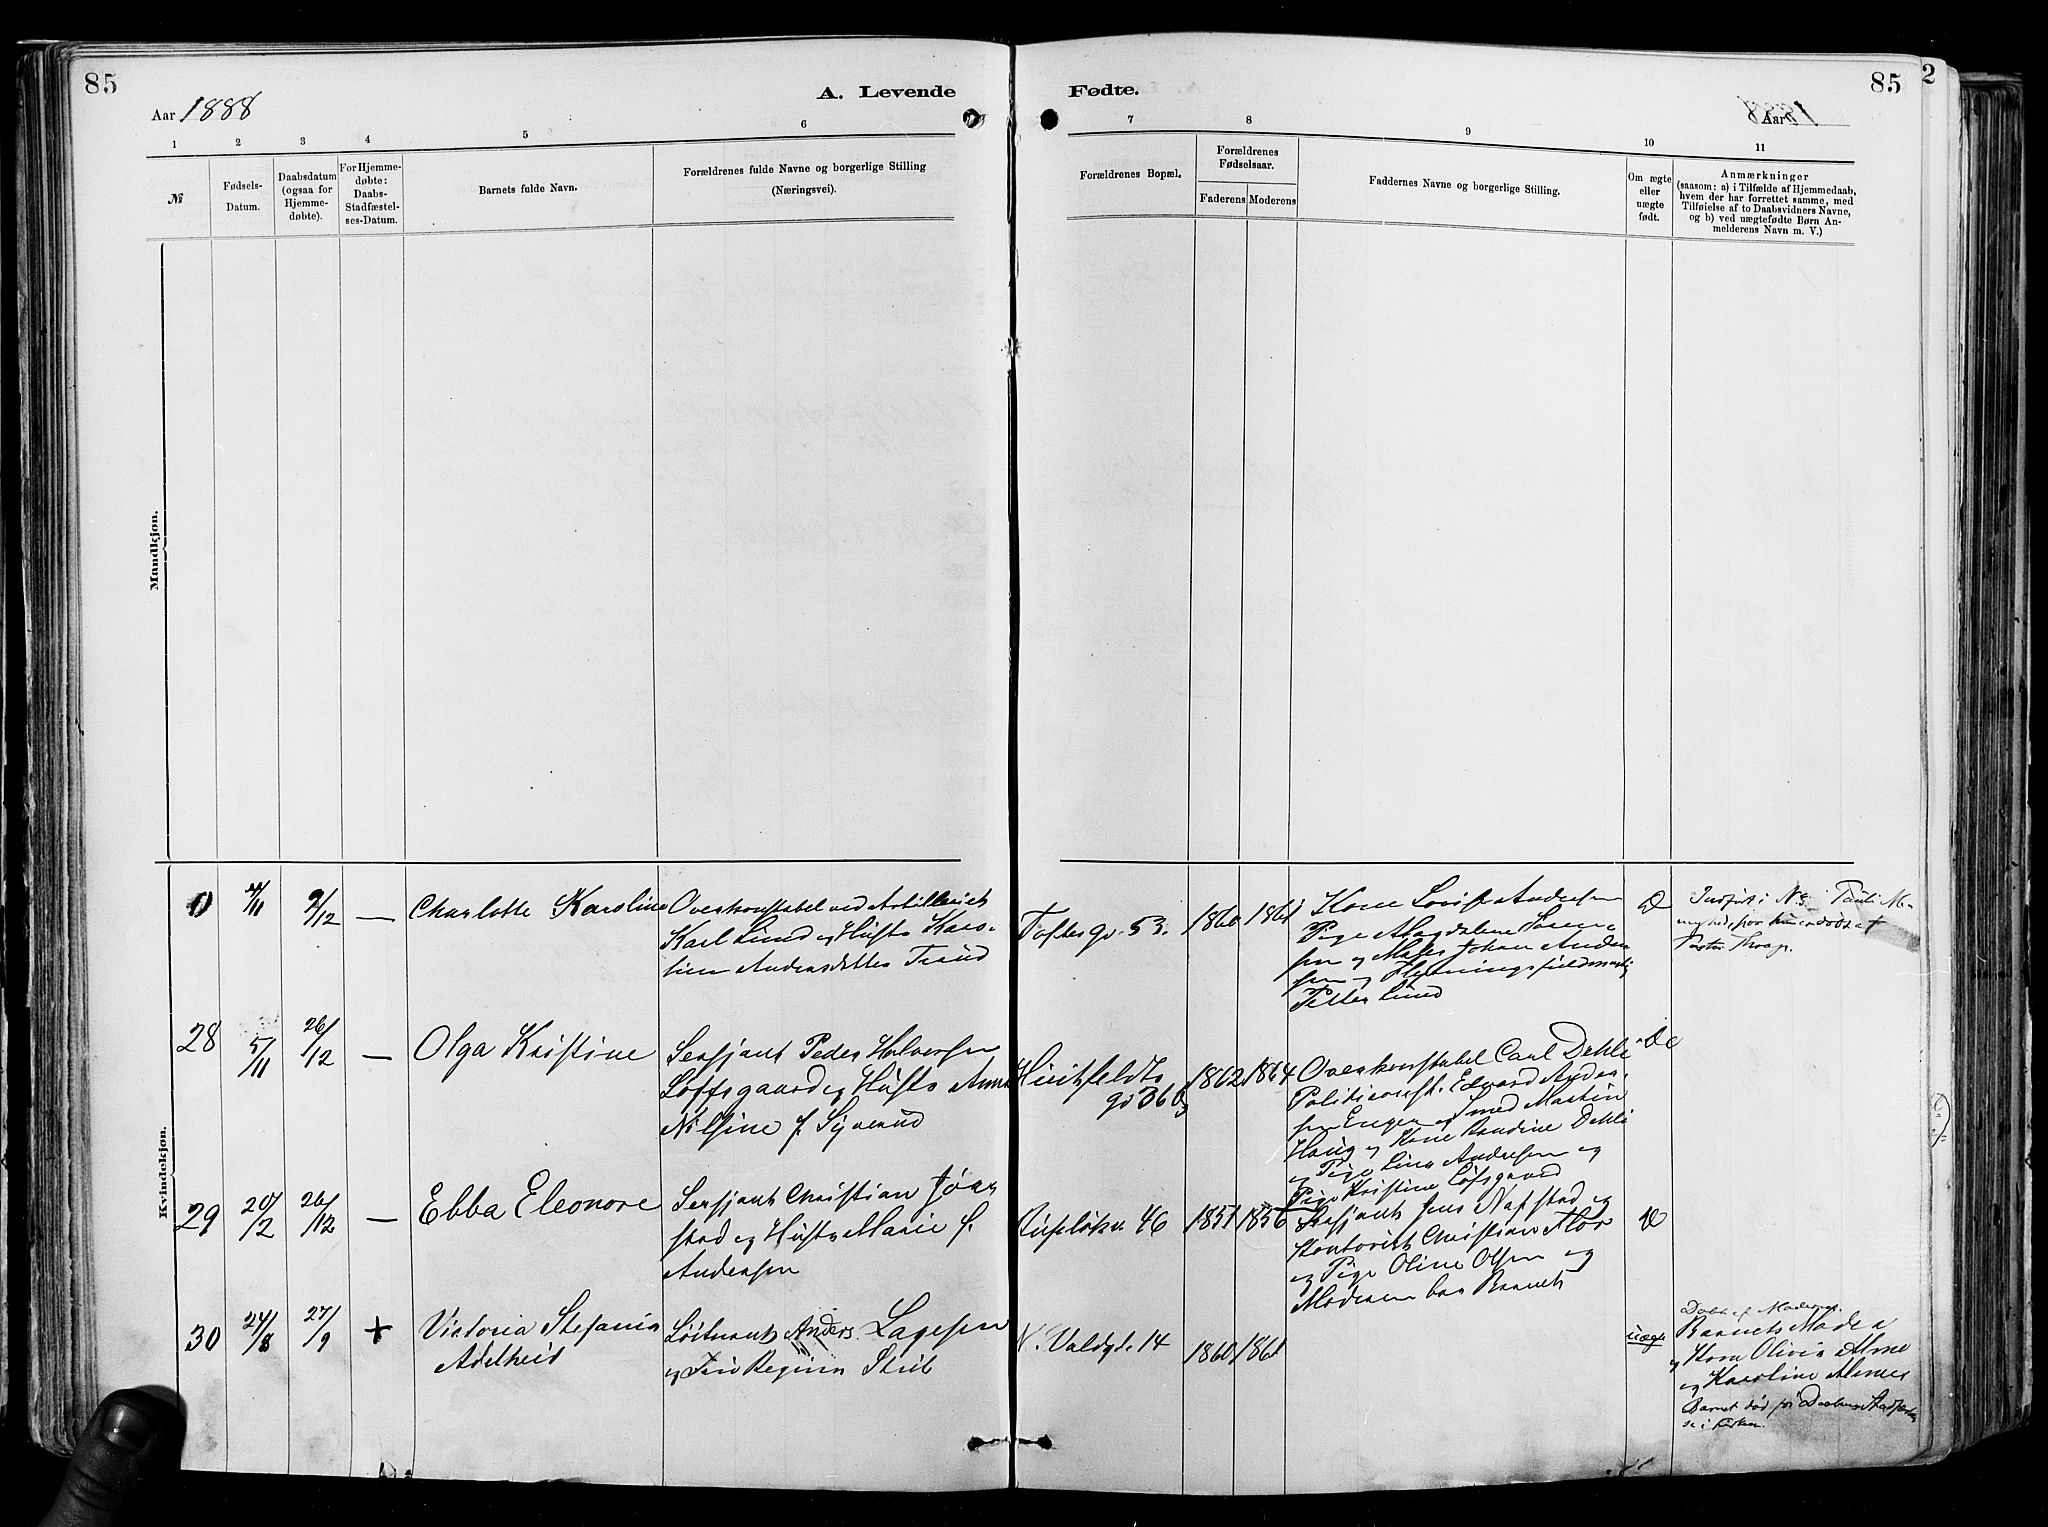 85
Aar 1888
A. Levende
Fødte.
85
2
Aar 1888
1 2 3 4 5 6 7 8 9 10 11
№
Fødsels-
Datum.
Daabsdatum
(ogsaa for
Hjemme-
døbte).
For Hjemme-
døbte:
Daabs-
Stadfæstel-
ses-Datum.
Barnets fulde Navn.
Forældrenes fulde Navne og borgerlige Stilling
(Næringsvei).
Forældrenes Bopæl.
Forældrenes
Fødselsaar.
Faderens
Moderens
Faddernes Navne og borgerlige Stilling.
Om ægte
eller
uægte
født.
Anmærkninger
(saasom: a) i Tilfælde af Hjemmedaab,
hvem der har forrettet samme, med
Tilføielse af to Daabsvidners Navne,
og b) ved uægtefødte Børn An-
melderens Navn m. V.)
Mandkjøn.
Kvindekjøn.
0
4/11
9/12
—
Charlotte Karoline
Overkonstabel ved Artilleriet
Karl Lund og Hustr Karo-
line Andersdatter
Toftesg. 53.
1860
1861
Kone Lovise Andersen
Pige Magdalene Soren-
sen og Johan Ander
sen og
Petter Lund
28
5/11
26/12
—
Olga Kristine
Sersjant Peder Halversen
Loffsgaard og Hustr Anna
Nilsine f. Syverud
Huitfeldts
g 36
1862
1864
Overkonstabel Carl Dehli
Edvard Ander-
sen Engen og Smed Martin
Haug og Kone Randine Dehli
og Pige Lina Andersen og
Pige Kristine Lofsgaard
29
20/2
26/12
—
Ebba Eleonore
Sersjant Christian
stad og Hustr Marie f.
Andersen
46
1851
1856
Sersjant Jens Nafstad og
Kontorist Christian Flor
og Pige Oline Olsen og
Moderen bar Barnet
30
24/8
27/9
+
Victoria Stefania
Adelheid
Løitnant Anders Lagesen
og Regina Strib
N. Valdgt. 14
1860
1861
uægte
Døbt af Moderen.
Barnets Moder
og Kone Olivia Alme
og Karoline Almes
Barnet død før Daabens Stadfæstel
se i Kirken.